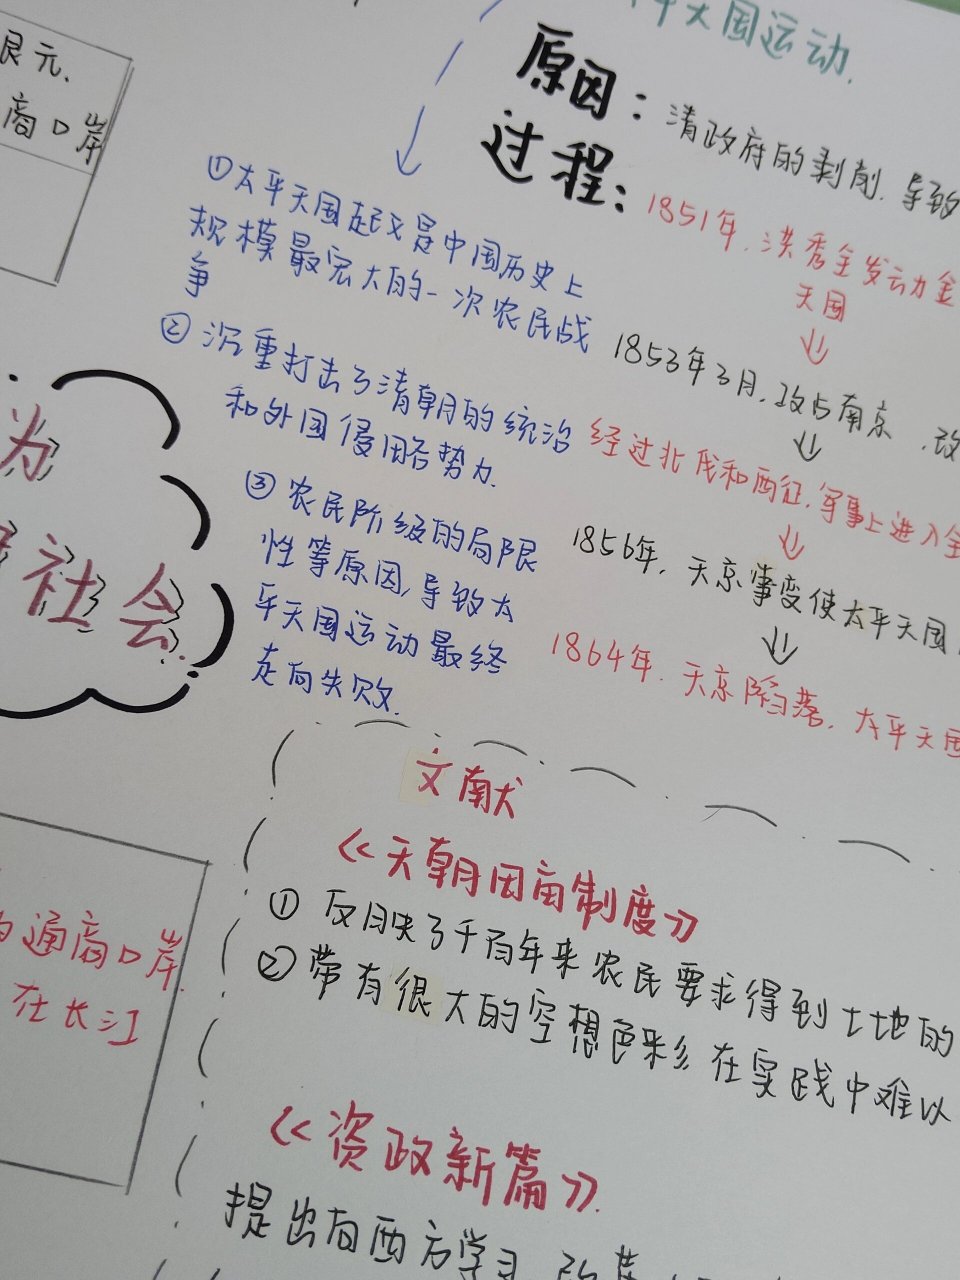 平天国运动.
原因：清政府的剥削.导致
过程：1851年.洪秀全发动金
天国
1853年3月.攻占南京.改
经过北伐和西征.军事上进入全
1856年.天京事变使太平天国
1864年.天京陷落.太平天国
①太平天国起义是中国历史上
规模最宏大的一次农民战
争
②沉重打击了清朝的统治
和外国侵略势力.
③农民阶级的局限
性等原因,导致太
平天国运动最终
走向失败.
银元.
商口岸
为
社会.
通商口岸.
在长江
文献
《天朝田亩制度》
①反映了千百年来农民要求得到土地的
②带有很大的空想色彩在实践中难以
《资政新篇》.
提出向西方学习